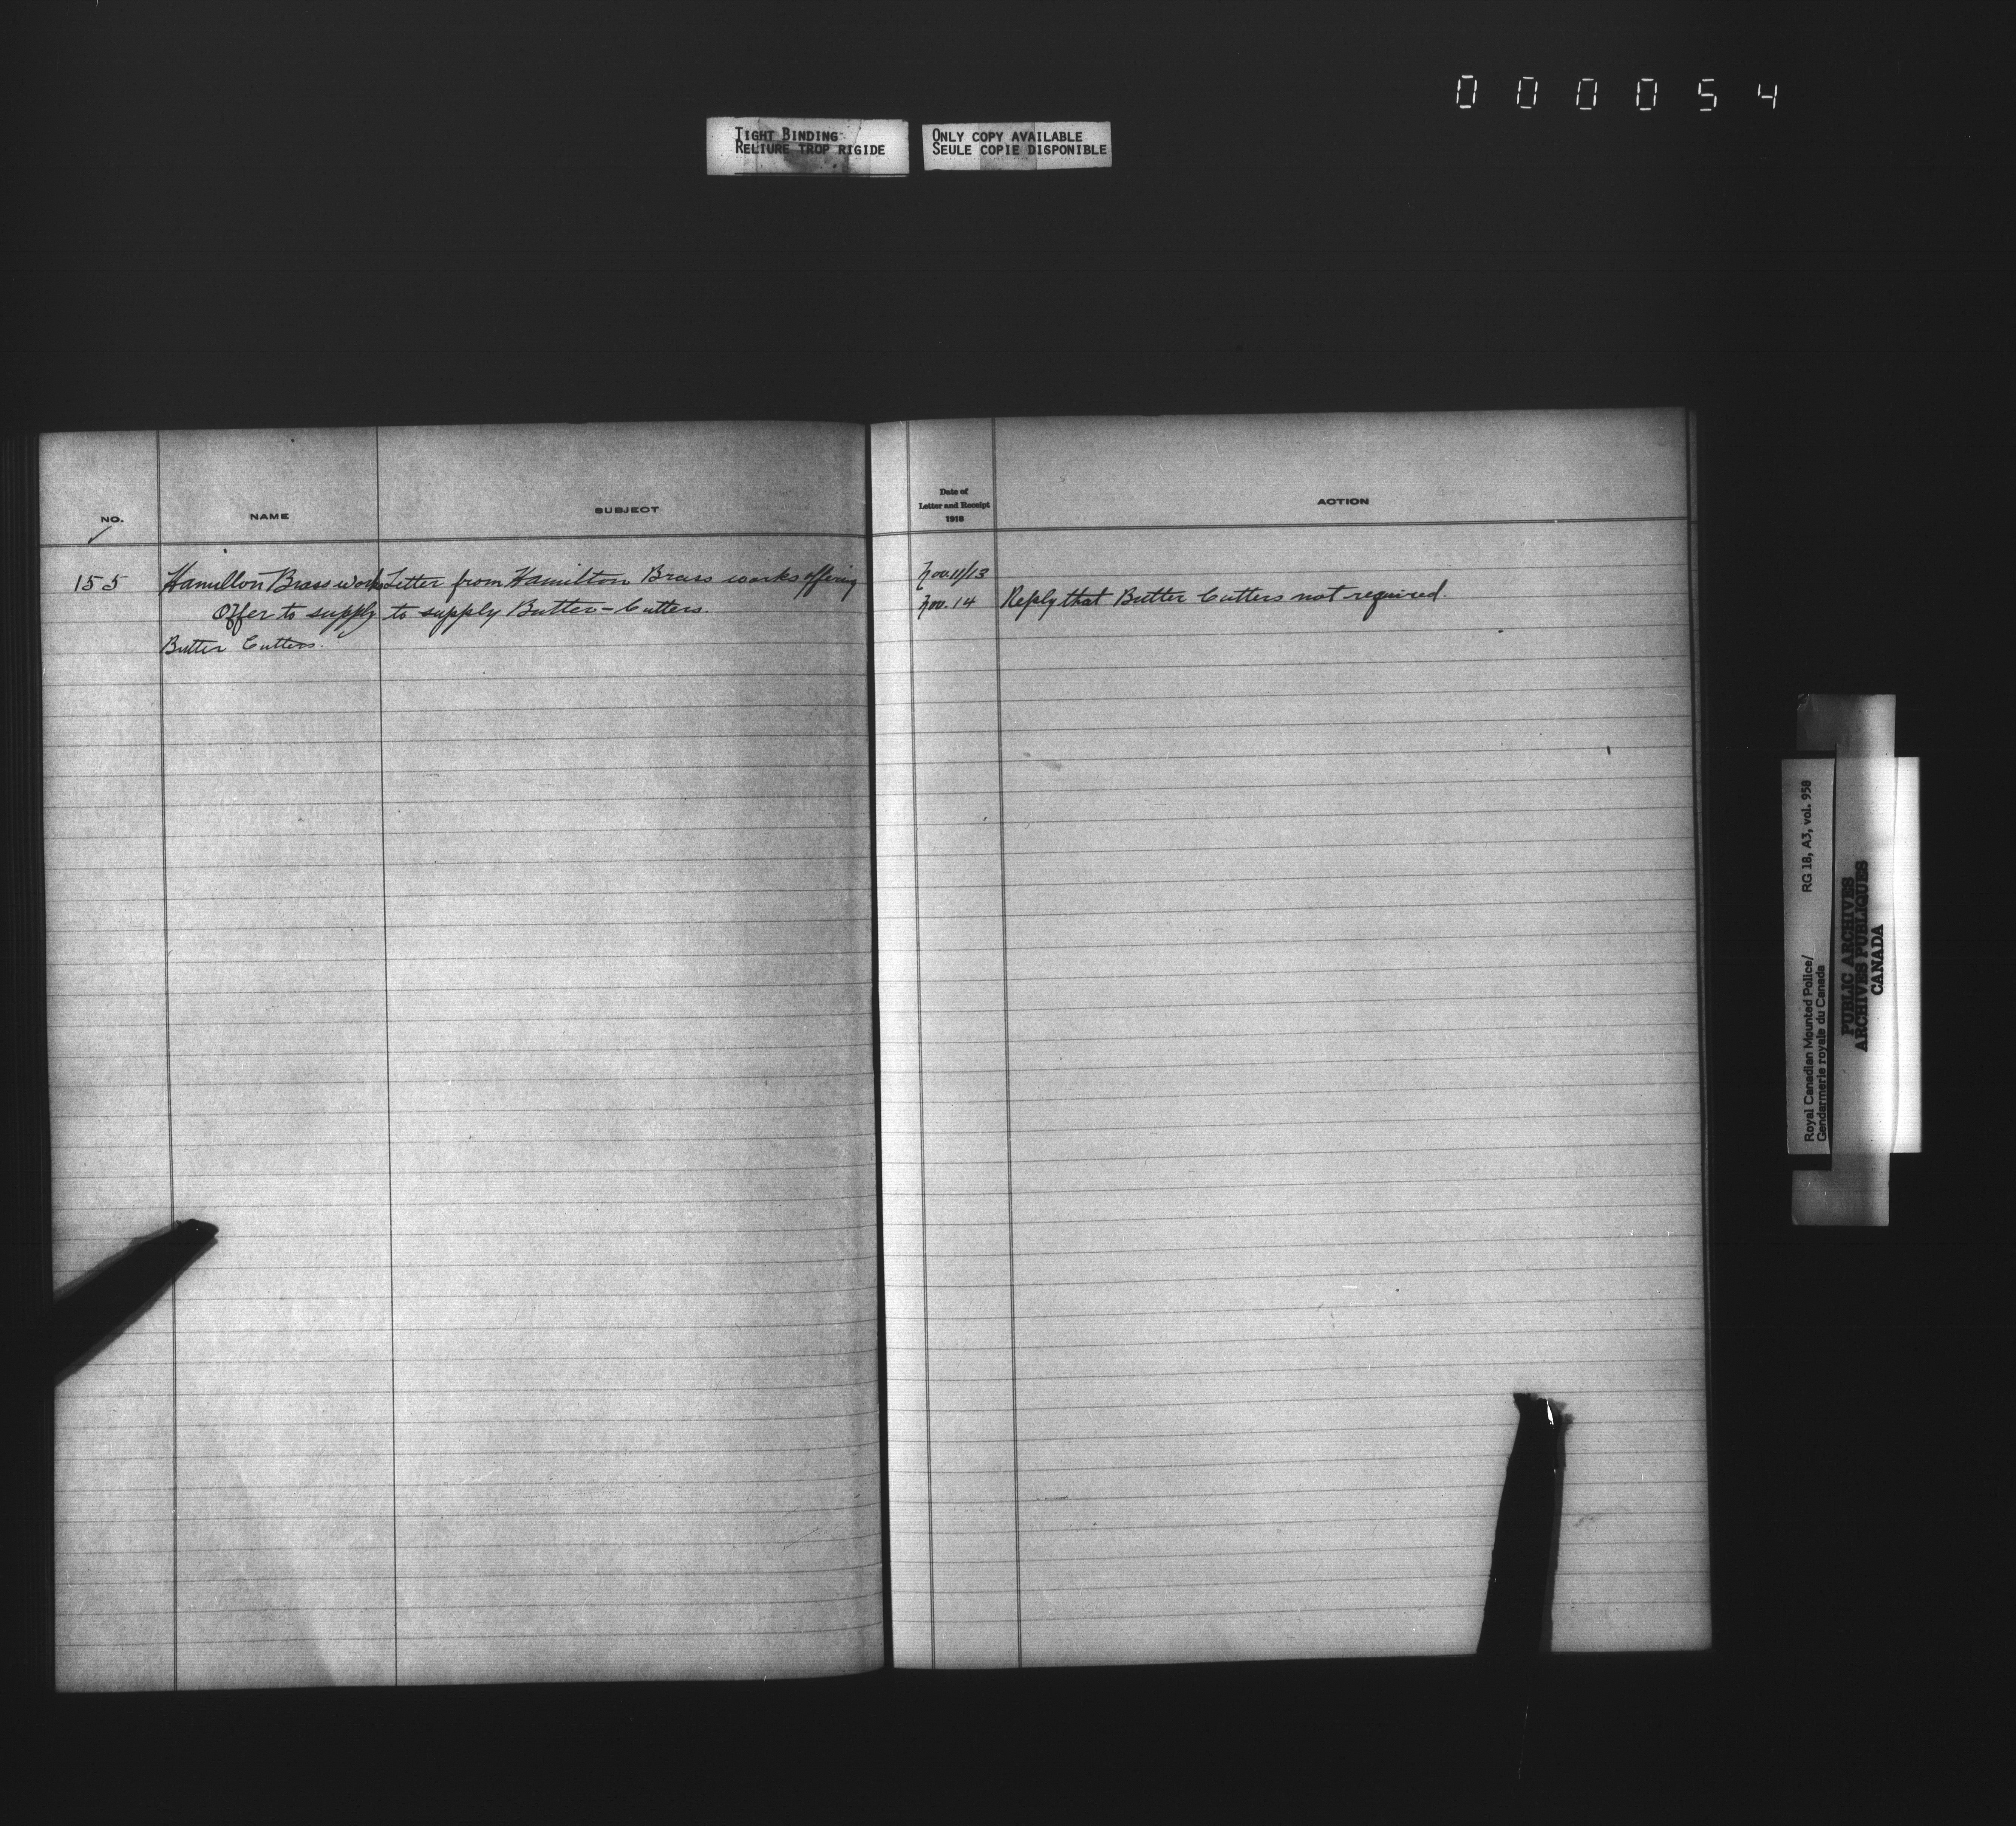 0 0 0 0 5 4
TIGHT BINDING
RELIURE TROP RIGIDE
ONLY COPY AVAILABLE
SEULE COPIE DISPONIBLE
NO.
NAME
SUBJECT
Date of
Letter and Receipt
1918
ACTION
155
Hamilton Brass works
Offer to supply
Butter Cutters.
Letter from Hamilton Brass works offering
to supply Butter-Cutters.
Nov. 11/13
Nov. 14
Reply that Butter Cutters not required.
Royal Canadian Mounted Police/
Gendarmerie royale du Canada
RG 18, A3, vol. 958
PUBLIC ARCHIVES
ARCHIVES PUBLIQUES
CANADA